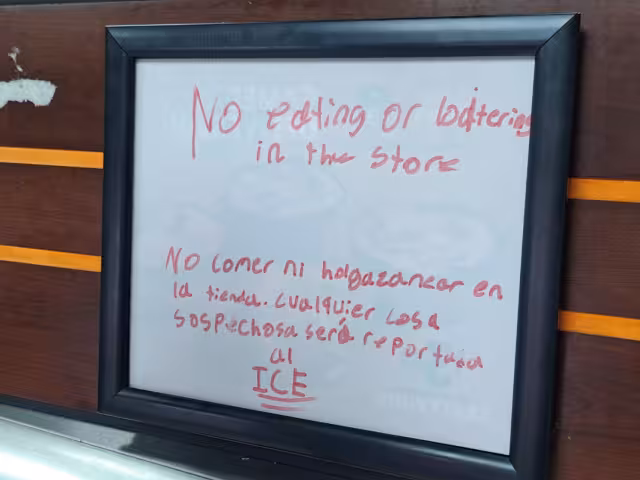 No eating or loitering
in the store
No comer ni holgazanear en
la tienda. Cualquier cosa
sospechosa será reportada
al
ICE